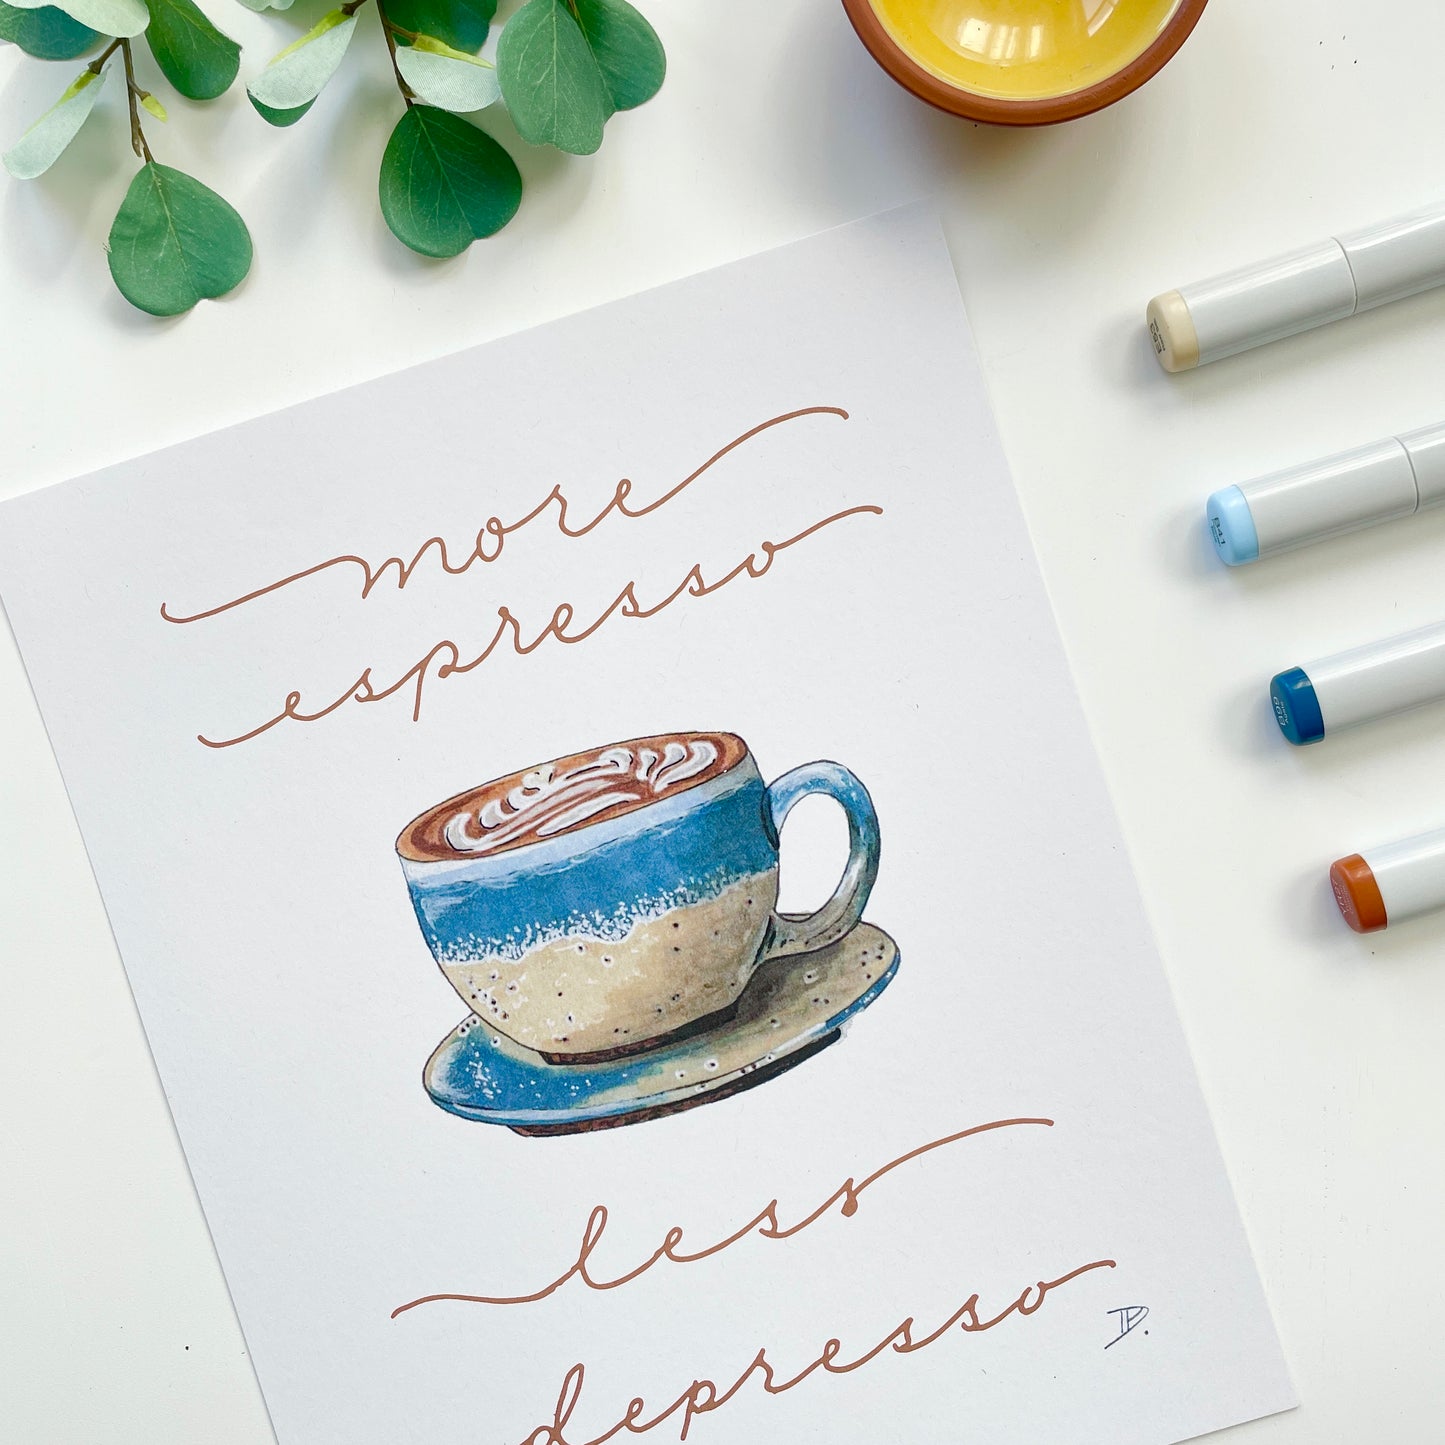 more
espresso
less
depresso
B41